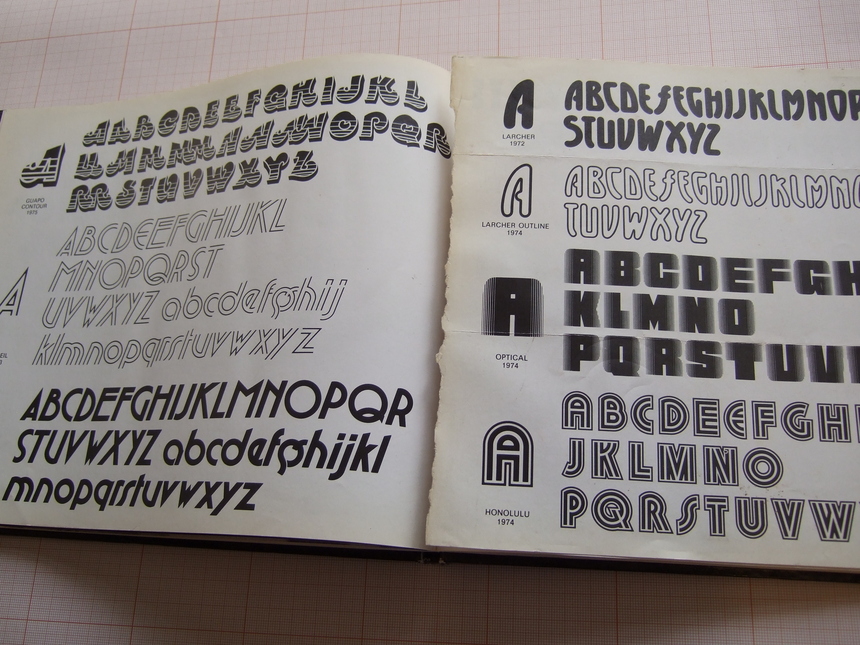 A
GUARD
CONTOUR
1975
AABCDEEFGHIJKL
MNOPQR
STUVWXYZ
A
ABCDEEFGHIJKL
MNOPQRST
UVWXYZ abcdefgghij
klmnopqrrstuvwxyz
ABCDEFGHIJKLMNOPQR
STUVWXYZ abcdefgghijkl
mnopqrrstuvwxyz
A
LARCHER
1972
ABCDEFEGHIJKLMNOP
STUVWXYZ
A
LARCHER OUTLINE
1974
ABCDEFEGHIJKLMN
TUVWXYZ
A
OPTICAL
1974
ABCDEFGH
KLMNO
PQRSTUV
A
HONOLULU
1974
ABCDEEFGHI
JKLMNO
PQRSTUVW